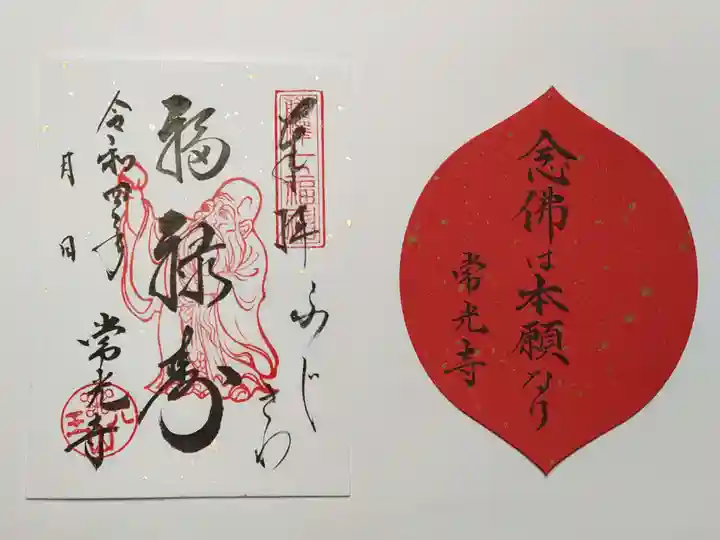 奉拝
ふじさわ
福禄寿
令和四年
月 日
常光寺
念佛は本願なり
常光寺